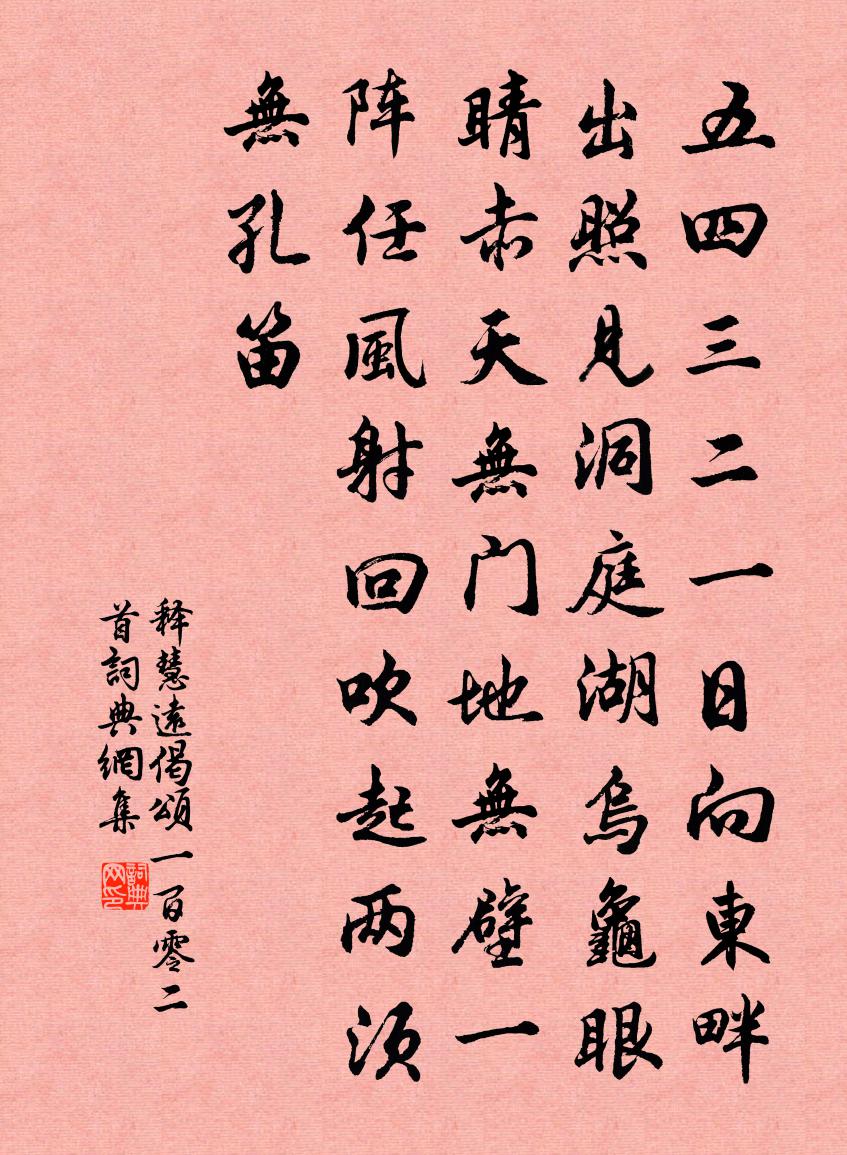 五四三二一日向東畔
出照見洞庭湖烏龜眼
晴赤天無门地無壁一
阵任風射回吹起两须
無孔笛
释慧遠偈頌一百零二
首詞典網集
詞典网印